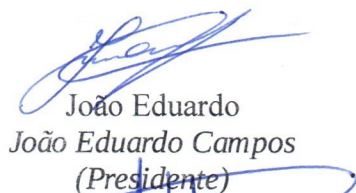 João Eduardo
João Eduardo Campos
(Presidente)